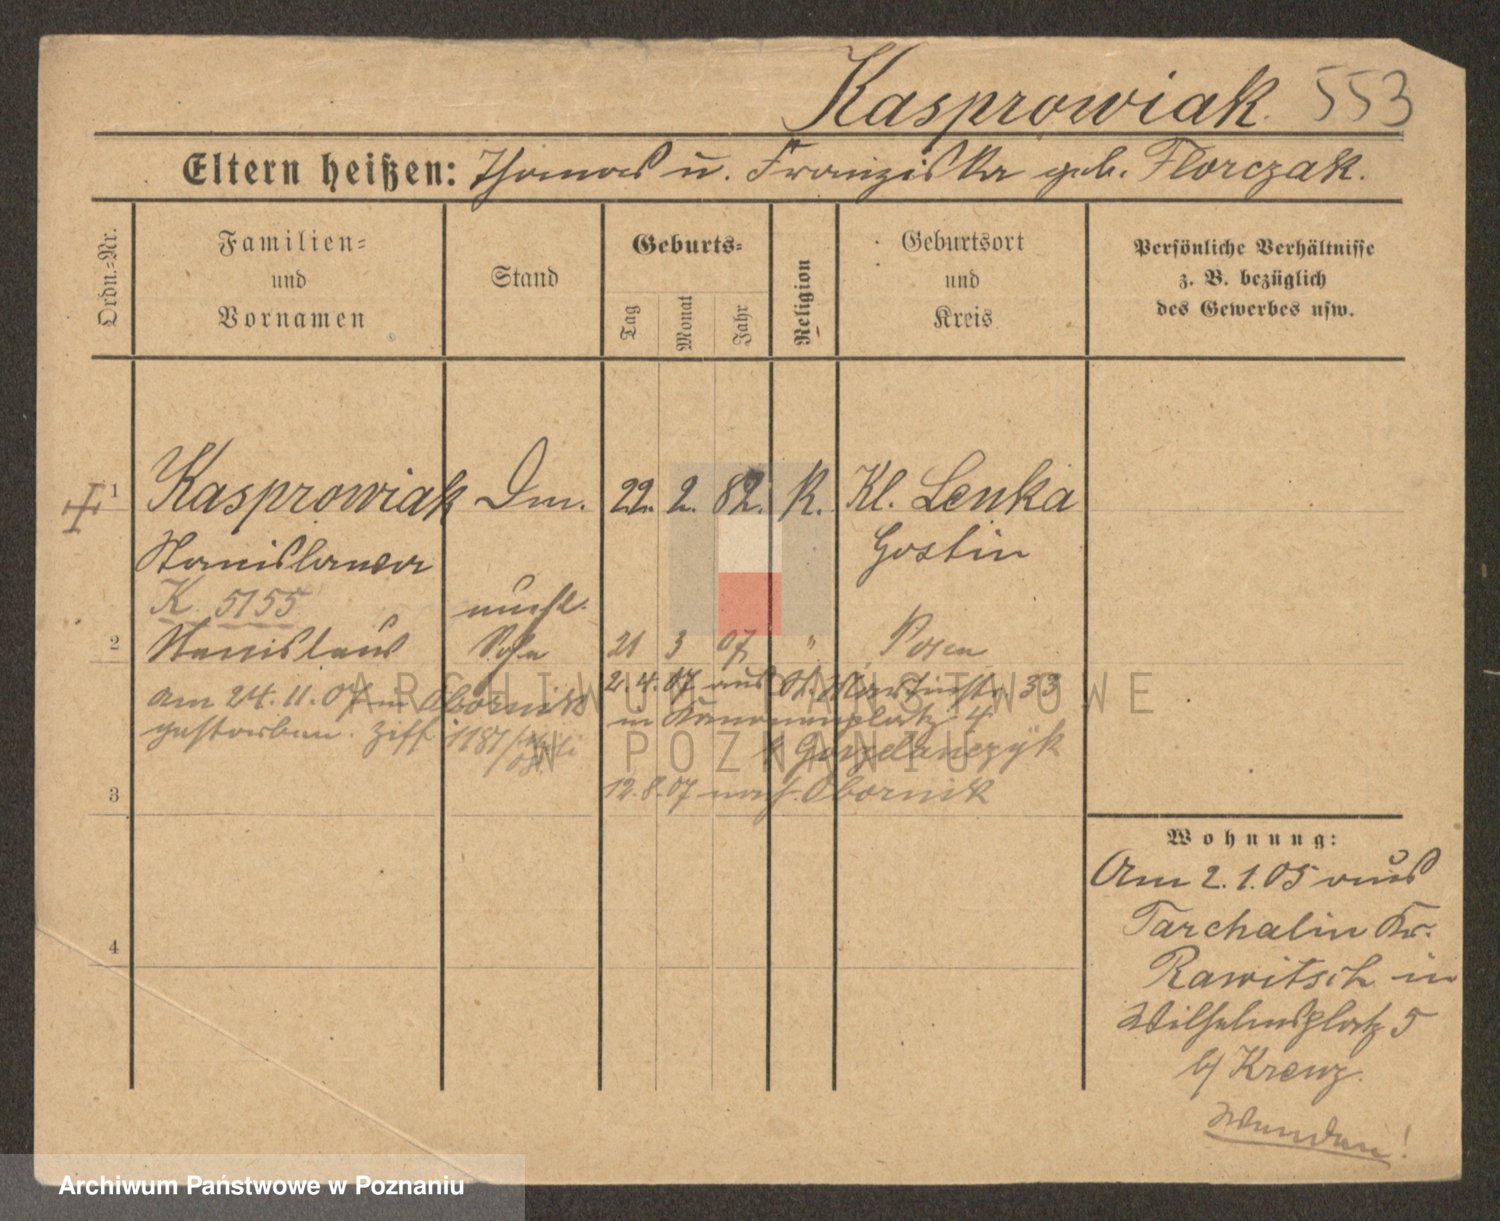 Kasprowiak. 553
Eltern heißen: Thomas u. Franziska geb. Florczak.
Ordn.-Nr.
Familien-
und
Vornamen
Stand
Geburts-
Tag
Monat
Jahr
Religion
Geburtsort
und
Kreis
Persönliche Verhältnisse
z. B. bezüglich
des Gewerbes usw.
1 Kasprowiak Dm. 22. 2. 82. K. Kl. Lenka
Stanislawa Gostin
K. 5155 unehl.
2 Stanislaus Sohn 21 3 07 " Posen
2. 4. 07 aus St. Martinstr. 33
am 24. 11. 07 in Obornik
in Kanonenplatz 4
gestorben. Ziff. 1181/
12. 8. 07 nach Obornik
3
4
Wohnung:
Am 2. 1. 05 aus
Tarchalin Kr.
Rawitsch in
Wilhelmsplatz 5
b/ Krenz.
Wenden!
ARCHIWUM PAŃSTWOWE
W POZNANIU
Archiwum Państwowe w Poznaniu